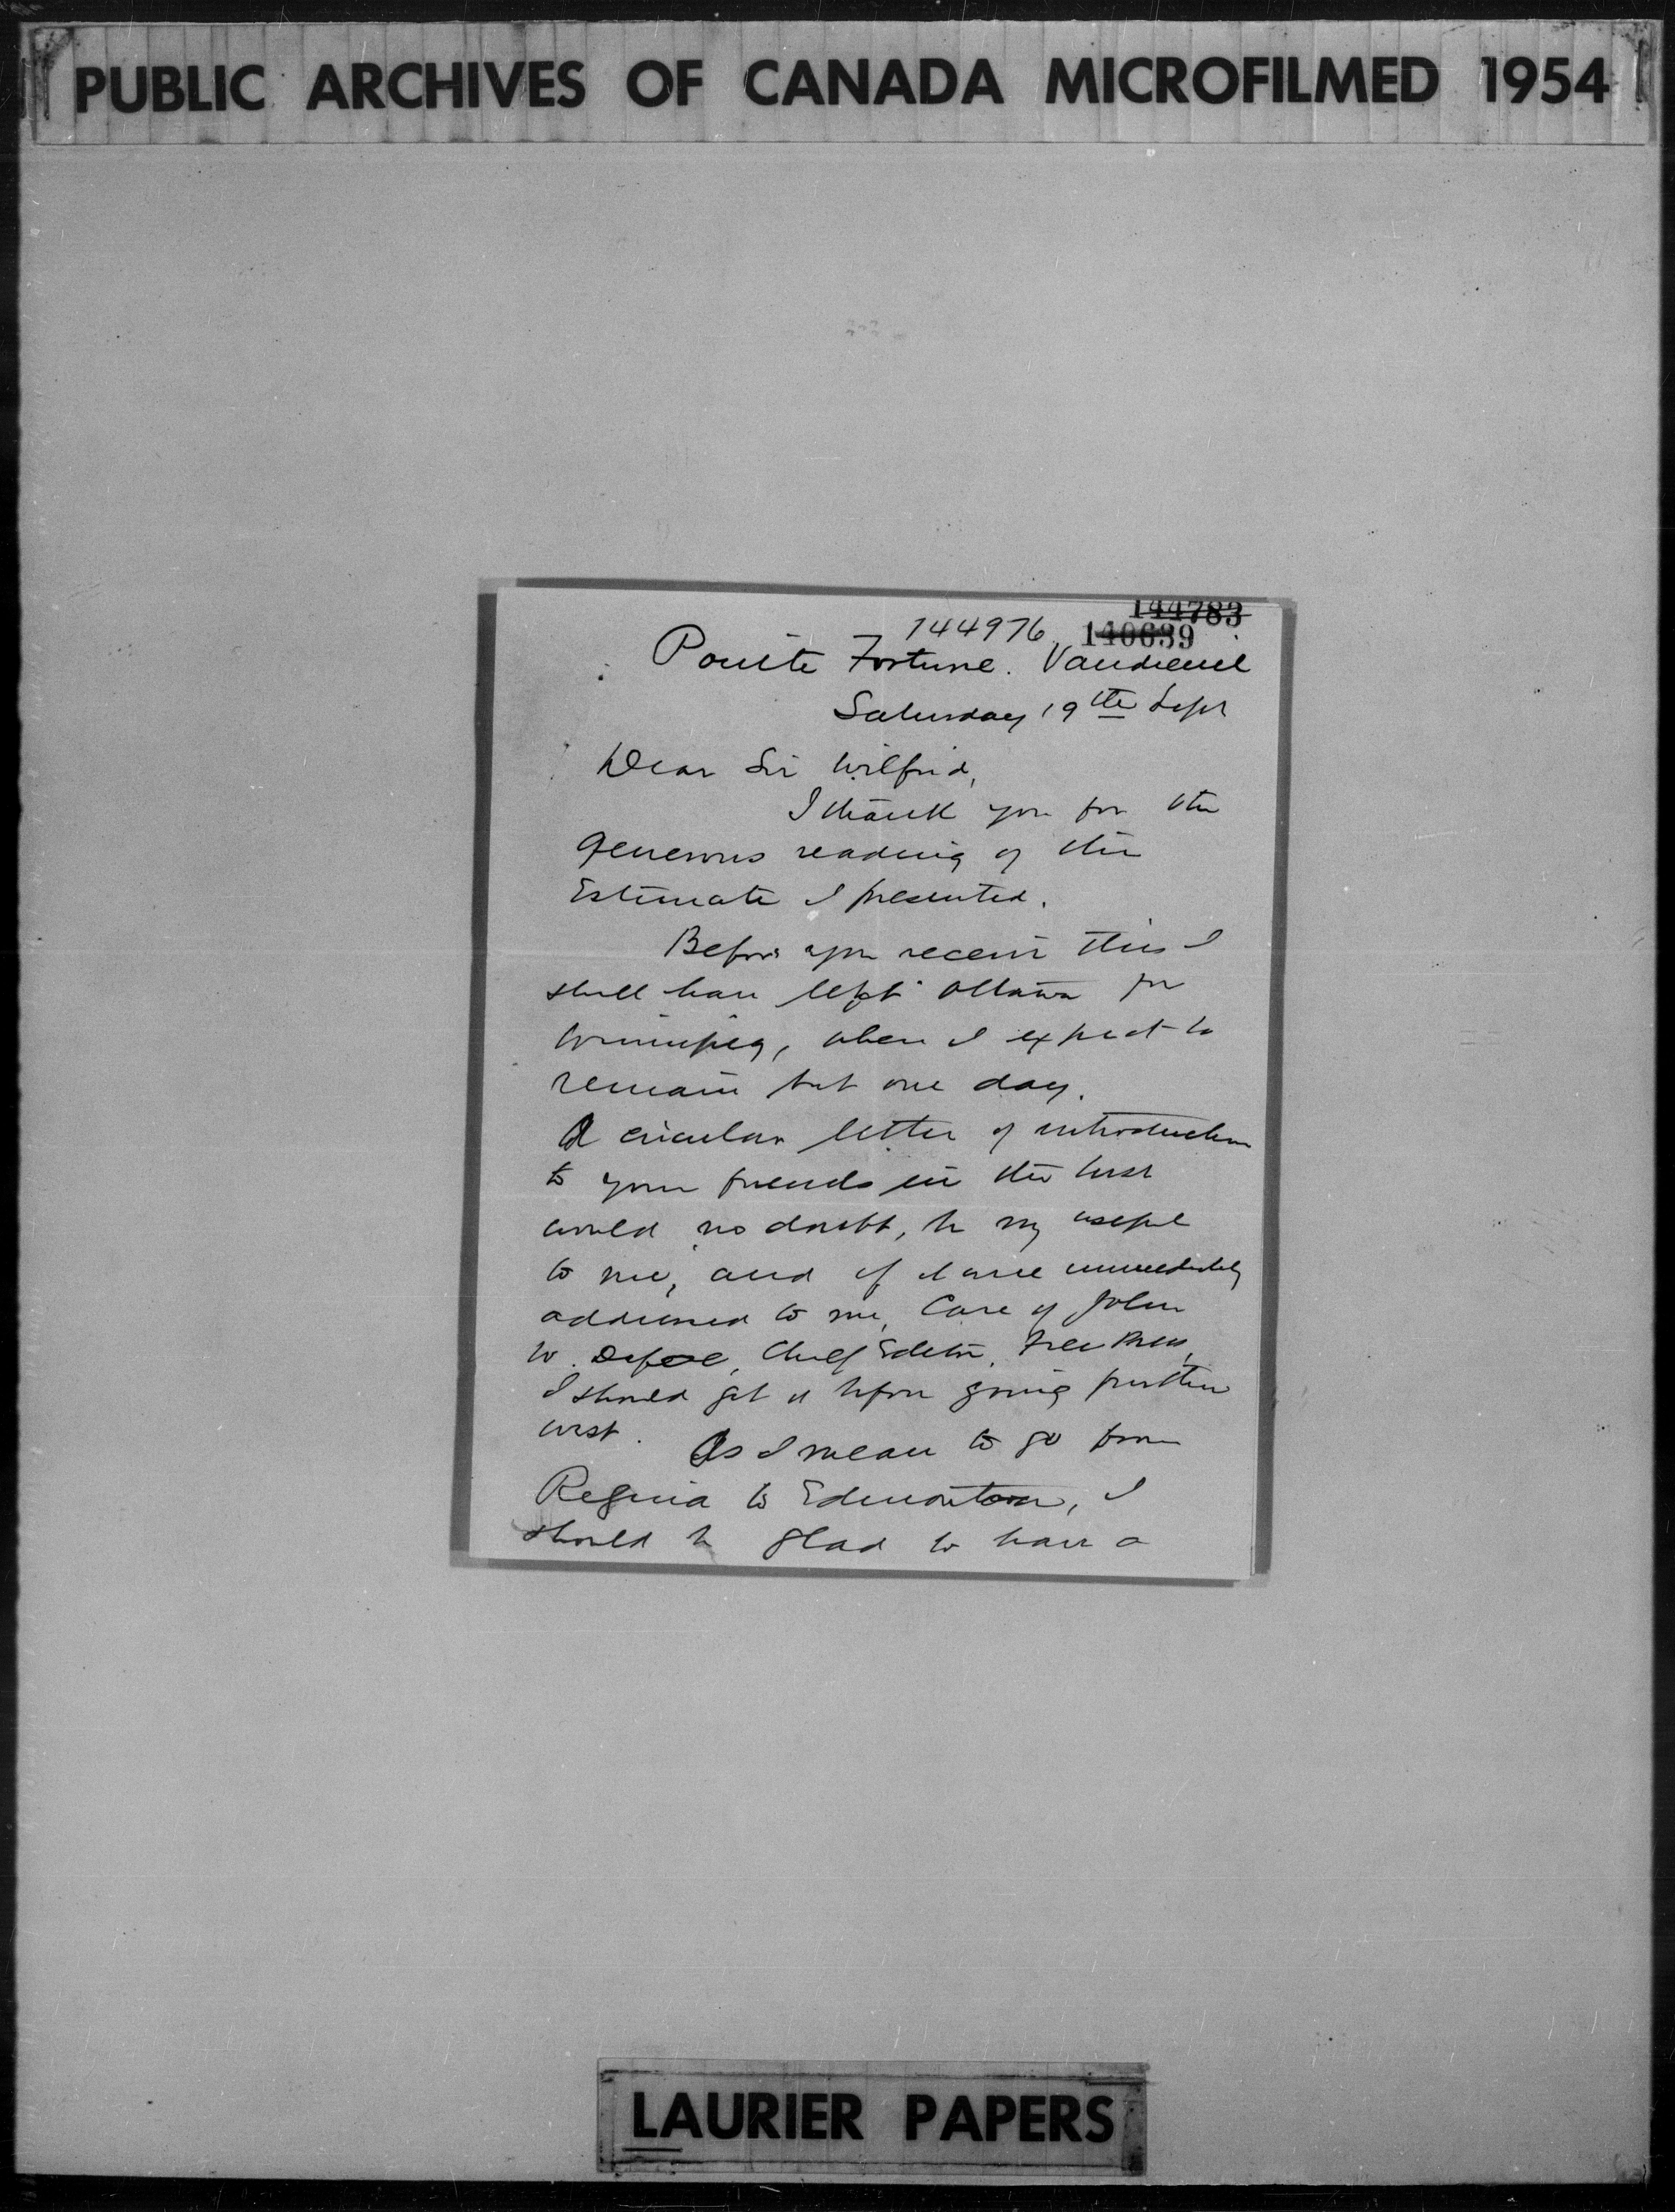 PUBLIC ARCHIVES OF CANADA MICROFILMED 1954
144783
144976 140639
Pointe Fortune. Vaudreuil
Saturday 19th Sept
Dear Sir Wilfrid,
I thank you for the
generous reading of the
Estimate I presented.
Before you receive this I
shall have left Ottawa for
Winnipeg, where I expect to
remain but one day.
A circular letter of introduction
to your friends in the West
would no doubt, be very useful
to me, and if it were immediately
addressed to me, Care of John
W. Dafoe, Chief Editor, Free Press,
I should get it before going further
west. As I mean to go from
Regina to Edmonton, I
should be glad to have a
LAURIER PAPERS